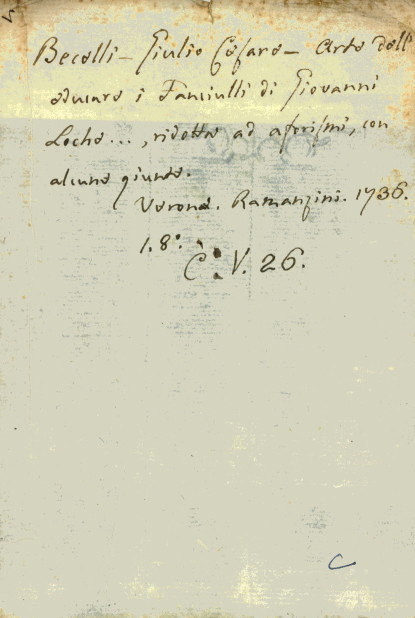 Becelli - Giulio Cesare - Arte dell'
educare i Fanciulli di Giovanni
Loche ..., ridotta ad aforismi, con
alcune giunte.
Verona. Ramanzini. 1736.
1. 8°.
C. V. 26.
C